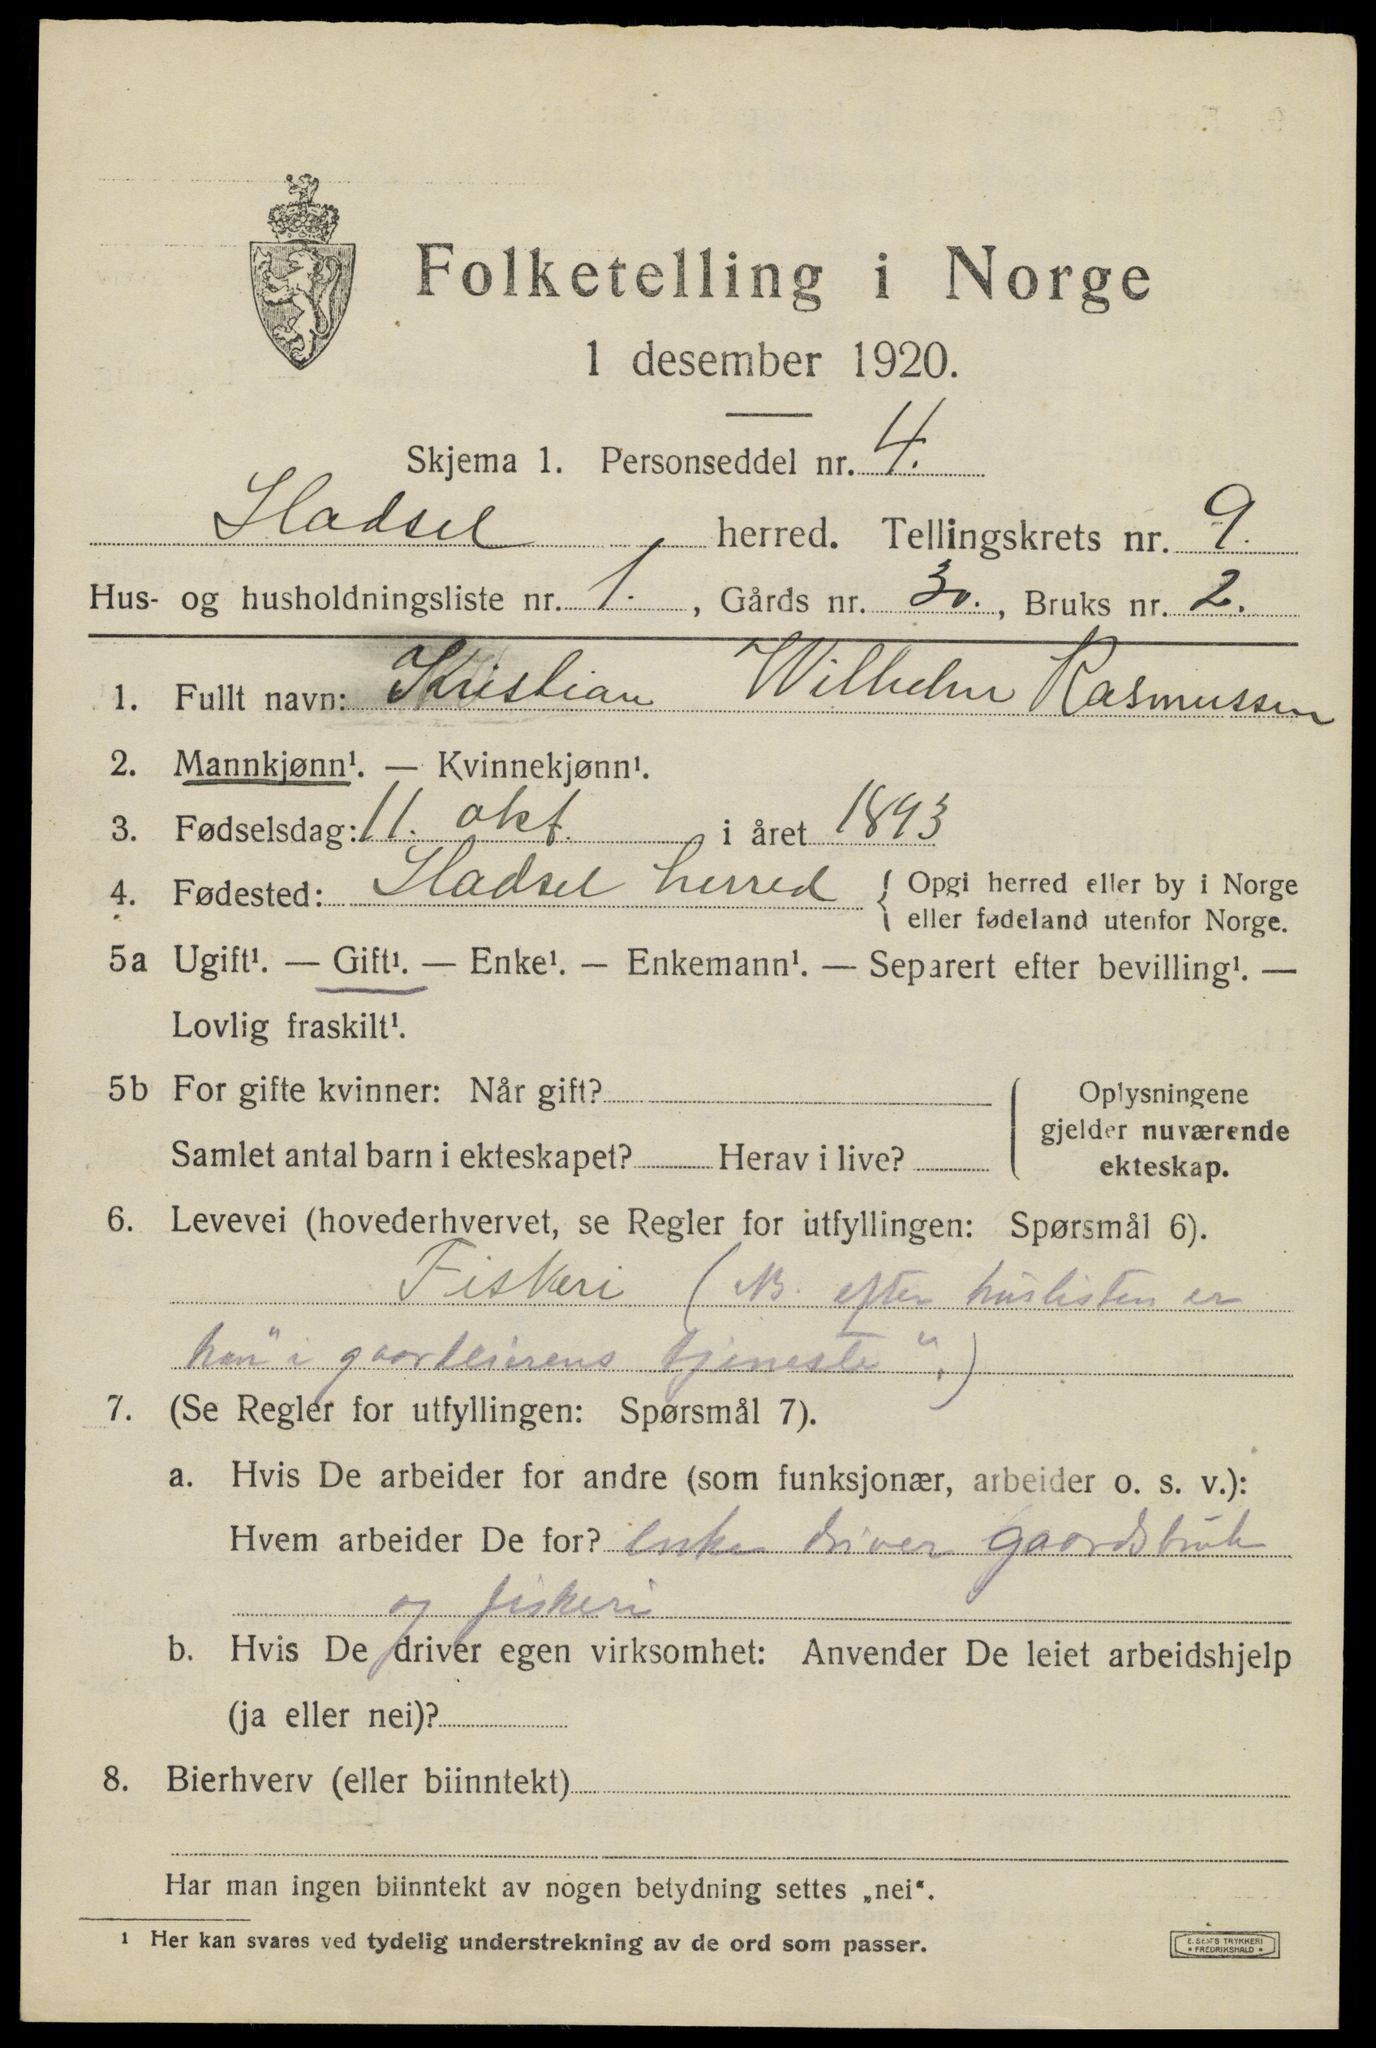 Folketelling i Norge
1 desember 1920.
Skjema 1. Personseddel nr. 4.
Hadsel herred. Tellingskrets nr. 9.
Hus- og husholdningsliste nr. 1., Gårds nr. 30., Bruks nr. 2.
1. Fullt navn: Kristian Wilhelm Rasmussen
2. Mannkjønn¹. — Kvinnekjønn¹.
3. Fødselsdag: 11. okt. i året 1893
4. Fødested: Hadsel herred { Opgi herred eller by i Norge
eller fødeland utenfor Norge.
5a Ugift¹. — Gift¹. — Enke¹. — Enkemann¹. — Separert efter bevilling¹. —
Lovlig fraskilt¹.
5b For gifte kvinner: Når gift?
Samlet antal barn i ekteskapet? Herav i live?
Oplysningene
gjelder nuværende
ekteskap.
6. Levevei (hovederhvervet, se Regler for utfyllingen: Spørsmål 6).
Fiskeri (NB. efter huslisten er
han "i gaardeierens tjeneste".)
7. (Se Regler for utfyllingen: Spørsmål 7).
a. Hvis De arbeider for andre (som funksjonær, arbeider o. s. v.):
Hvem arbeider De for? enke driver gaardsbruk
og fiskeri
b. Hvis De driver egen virksomhet: Anvender De leiet arbeidshjelp
(ja eller nei)?
8. Bierhverv (eller biinntekt)
Har man ingen biinntekt av nogen betydning settes „nei“.
1 Her kan svares ved tydelig understrekning av de ord som passer.
E. SEMS TRYKKERI
• FREDRIKSHALD •